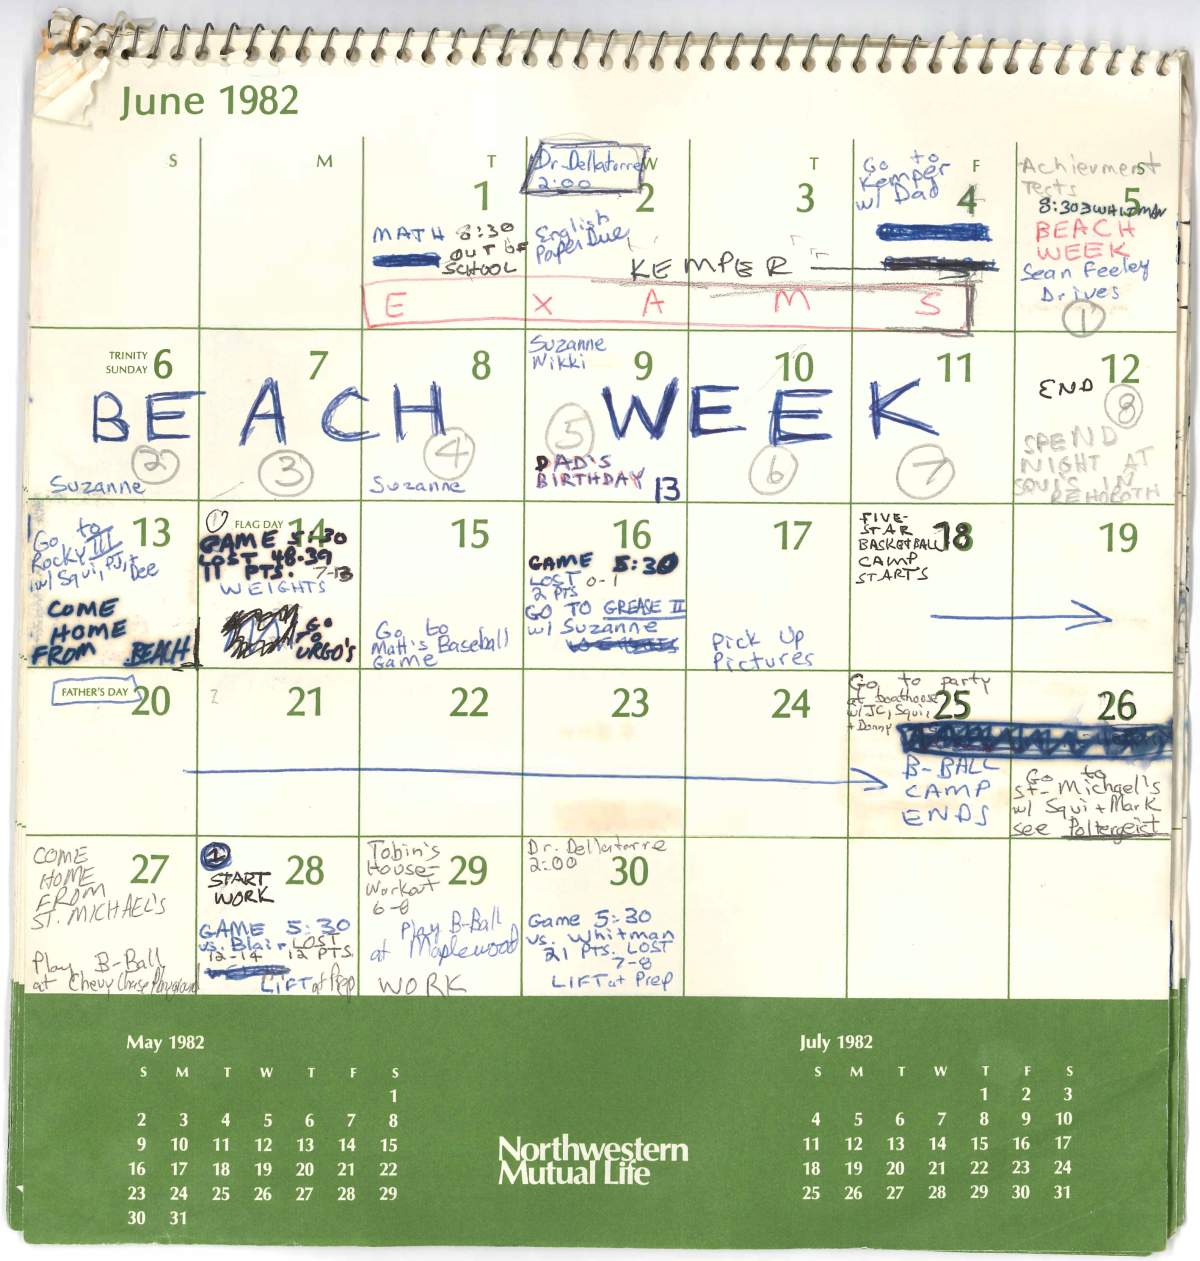 June 1982
S M T W T F S
1
MATH 8:30
OUT OF
SCHOOL
Dr. Dellatorre
2:00
2
English
Paper Due
3
KEMPER
Go to
Kemper
w/ Dad
4
Achievment
Tests
5
8:30 WHITMAN
BEACH
WEEK
Sean Feeley
Drives
1
E X A M S
TRINITY
SUNDAY 6
2
Suzanne
7
3
8
4
Suzanne
Suzanne
Nikki
9
5
DAD'S
BIRTHDAY 13
10
6
11
7
12
END
8
SPEND
NIGHT AT
SQUI'S IN
REHOBOTH
BEACH WEEK
13
Go to
Rocky III
w/ Squi, PJ, +
Dee
COME
HOME
FROM BEACH
1
FLAG DAY 14
GAME 5:30
LOST 48-39
11 PTS. 7-13
WEIGHTS
GO
TO
URGO'S
15
Go to
Matt's Baseball
Game
16
GAME 5:30
LOST 0-1
2 PTS
GO TO GREASE II
w/ Suzanne
17
Pick Up
Pictures
FIVE-
STAR 18
BASKETBALL
CAMP
STARTS
19
FATHER'S DAY 20
2
21
22
23
24
Go to party
at boathouse
w/ JC, Squi, 25
+ Donny
B-BALL
CAMP
ENDS
26
Go to
St. Michael's
w/ Squi + Mark
see Poltergeist
COME
HOME 27
FROM
ST. MICHAEL'S
Play B-Ball
at Chevy Chase Playground
1
START 28
WORK
GAME 5:30
vs. Blair LOST
12-14 12 PTS.
LIFT at Prep
Tobin's
House- 29
Workout
6-8
Play B-Ball
at Maplewood
WORK
Dr. Dellatorre
2:00
30
Game 5:30
vs. Whitman
21 PTS. LOST
7-8
LIFT at Prep
May 1982
S M T W T F S
1
2 3 4 5 6 7 8
9 10 11 12 13 14 15
16 17 18 19 20 21 22
23 24 25 26 27 28 29
30 31
Northwestern
Mutual Life
July 1982
S M T W T F S
1 2 3
4 5 6 7 8 9 10
11 12 13 14 15 16 17
18 19 20 21 22 23 24
25 26 27 28 29 30 31